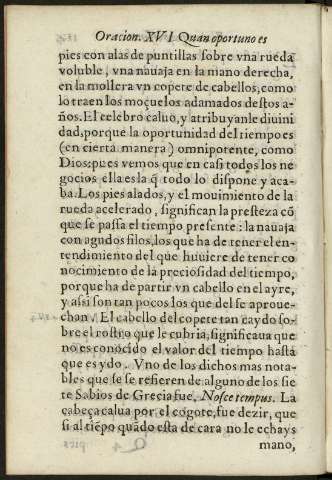 Oracion. XVI. Quan oportuno es
pies con alas de puntillas sobre vna rueda
voluble, vna nauaja en la mano derecha,
en la mollera vn copete de cabellos, como
lo traen los moçuelos adamados destos a-
ños. El celebro caluo, y atribuyanle diuini
dad, porque la oportunidad del tiempo es
(en cierta manera) omnipotente, como
Dios: pues vemos que en casi todos los ne
gocios ella es la q̃ todo lo dispone y aca-
ba. Los pies alados, y el mouimiento de la
rueda acelerado, significan la presteza cõ
que se passa el tiempo presente: la nauaja
con agudos filos, los que ha de tener el en-
tendimiento del que huuiere de tener co
nocimiento de la preciosidad del tiempo,
porque ha de partir vn cabello en el ayre,
y assi son tan pocos los que del se aproue-
chan. El cabello del copete tan caydo so-
bre el rostro que le cubria, significaua que
no es conocido el valor del tiempo hasta
que es ydo. Vno de los dichos mas nota-
bles que se se refieren de alguno de los sie
te Sabios de Grecia fue, Nosce tempus. La
cabeça calua por el cogote, fue dezir, que
si al tiẽpo quãdo esta de cara no le echays
mano,